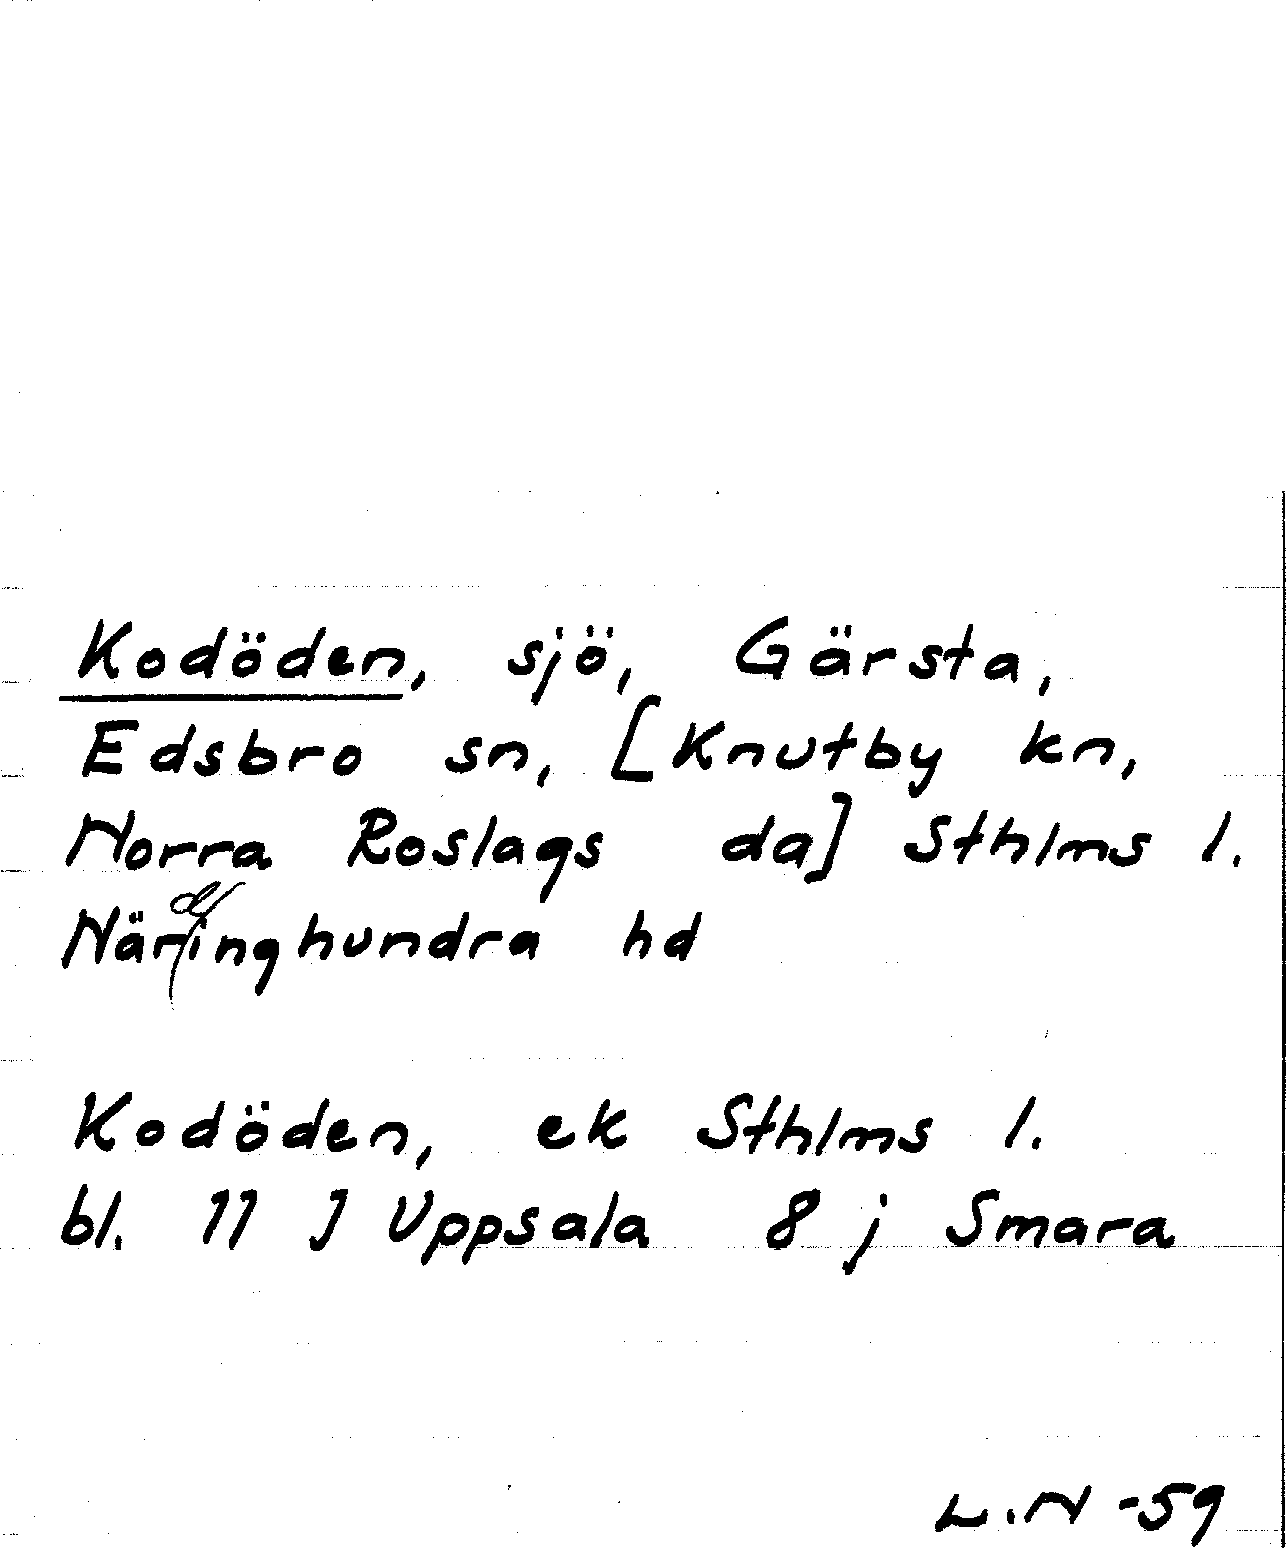 Kodöden, sjö, Gärsta,
Edsbro sn, [Knutby kn,
Norra Roslags da] Sthlms l.
Närdinghundra hd
Kodöden, ek Sthlms l.
bl. 11 J Uppsala 8 j Smara
L.N -59